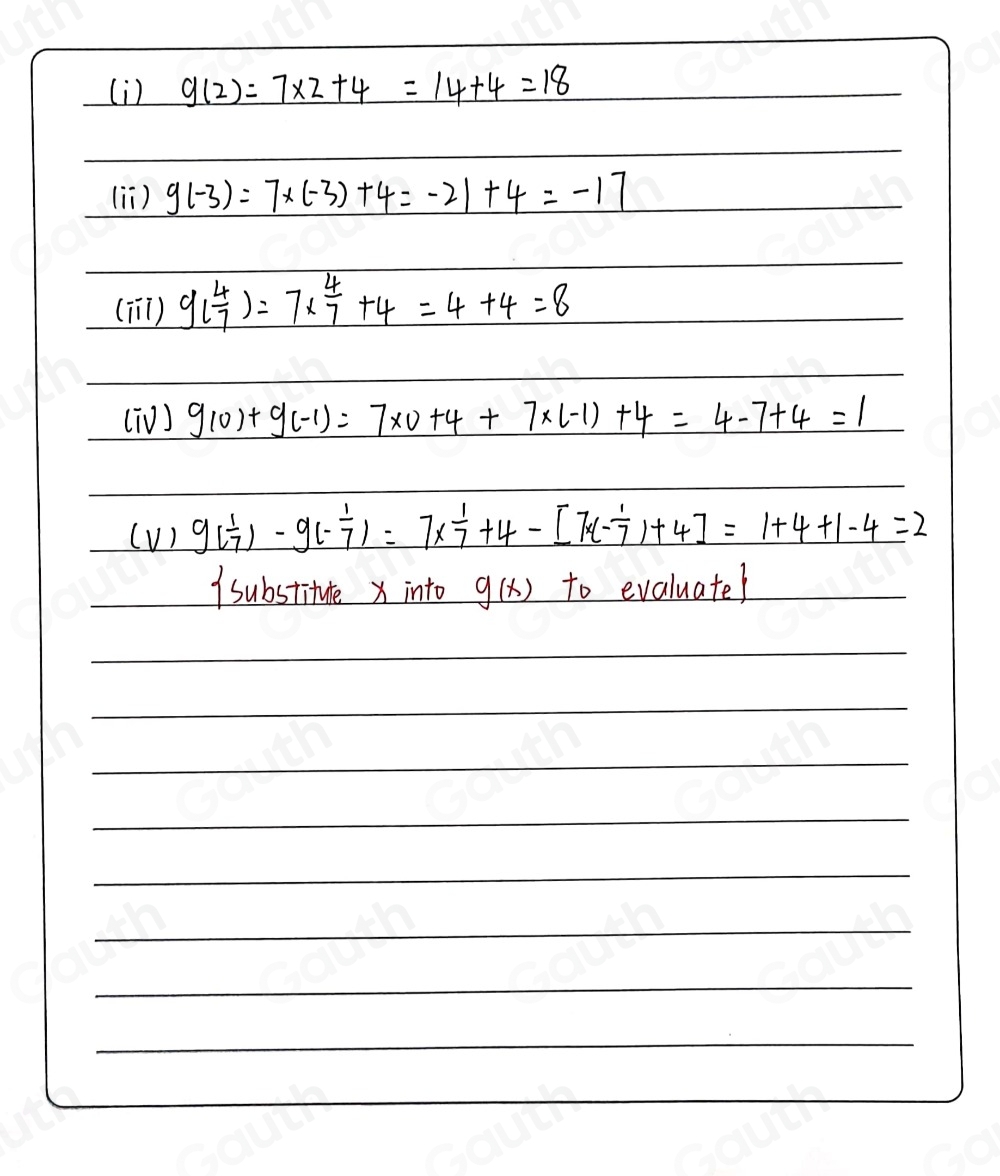 (i) g(2) = 7×2+4 = 14+4 = 18
(ii) g(-3) = 7×(-3)+4 = -21+4 = -17
(iii) g(4/7) = 7×4/7+4 = 4+4 = 8
(iv) g(0)+g(-1) = 7×0+4 + 7×(-1)+4 = 4-7+4 = 1
(v) g(1/7) - g(-1/7) = 7×1/7+4 - [7×(-1/7)+4] = 1+4+1-4 = 2
{substitute x into g(x) to evaluate}
Gauth